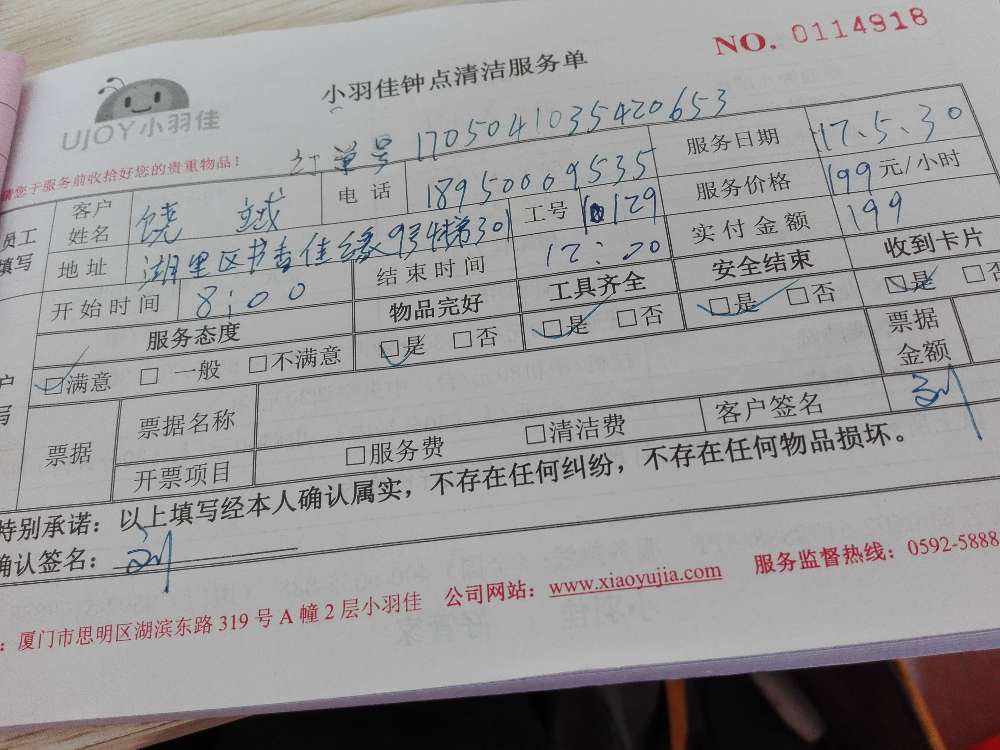 NO. 0114918
小羽佳钟点清洁服务单
UJOY小羽佳
请您于服务前收拾好您的贵重物品！
订单号 1705041035420653
员工填写
客户姓名 饶 电话 18950009535 服务日期 17.5.30
地址 湖里区书香佳缘934梯301 工号 129 服务价格 199元/小时
开始时间 8:00 结束时间 12:00 实付金额 199
服务态度 物品完好 工具齐全 安全结束 收到卡片
□满意 □一般 □不满意 □是 □否 □是 □否 □是 □否 □是 □否
票据 票据名称 票据金额
开票项目 □服务费 □清洁费 客户签名 刘
特别承诺：以上填写经本人确认属实，不存在任何纠纷，不存在任何物品损坏。
确认签名：刘
：厦门市思明区湖滨东路319号A幢2层小羽佳 公司网站：www.xiaoyujia.com 服务监督热线：0592-5888